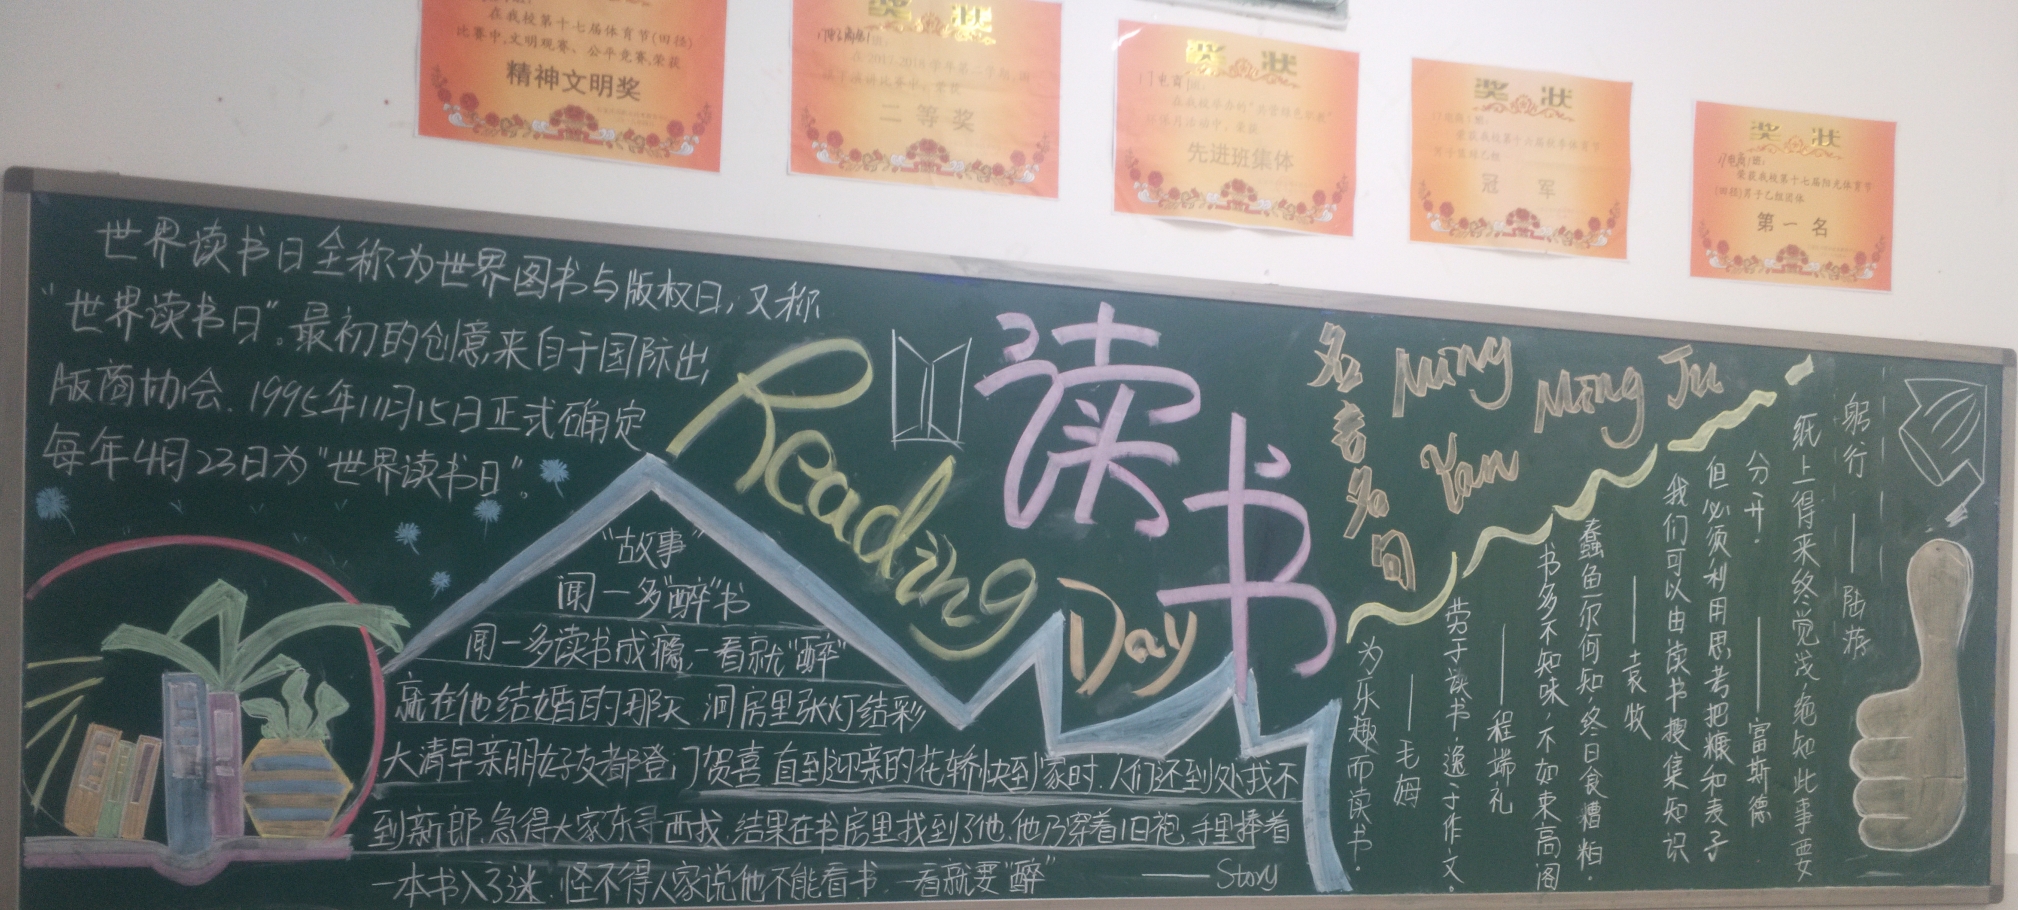 在我校第十七届体育节(田径)
比赛中,文明观赛、公平竞赛,荣获
精神文明奖
奖状
在2017-2018学年第二学期
二等奖
奖状
先进班集体
奖状
荣获我校第十六届秋季体育节
冠军
奖状
荣获我校第十七届阳光体育节
(田径)男子乙组团体
第一名
世界读书日全称为世界图书与版权日,又称
“世界读书日”。最初的创意来自于国际出
版商协会.1995年11月15日正式确定
每年4月23日为“世界读书日”。
Reading
Day
读书
“故事”
闻一多“醉”书
闻一多读书成瘾,一看就“醉”
就在他结婚的那天 洞房里张灯结彩
大清早亲朋好友都登门贺喜 直到迎亲的花轿快到家时.人们还到处找不
到新郎.急得大家东寻西找.结果在书房里找到了他.他乃穿着旧袍 手里捧着
一本书入了迷.怪不得人家说他不能看书.一看就要“醉”
——Story
名言名句
Ming
Yan
Ming Ju
躬行 ——陆游
纸上得来终觉浅绝知此事要
分开. ——富斯德
但必须利用思考把糠和麦子
我们可以由读书搜集知识
——袁牧
蠢鱼尔何知,终日食糟粕.
书多不知味,不如束高阁
——程端礼
劳于读书,逸于作文。
——毛姆
为乐趣而读书.